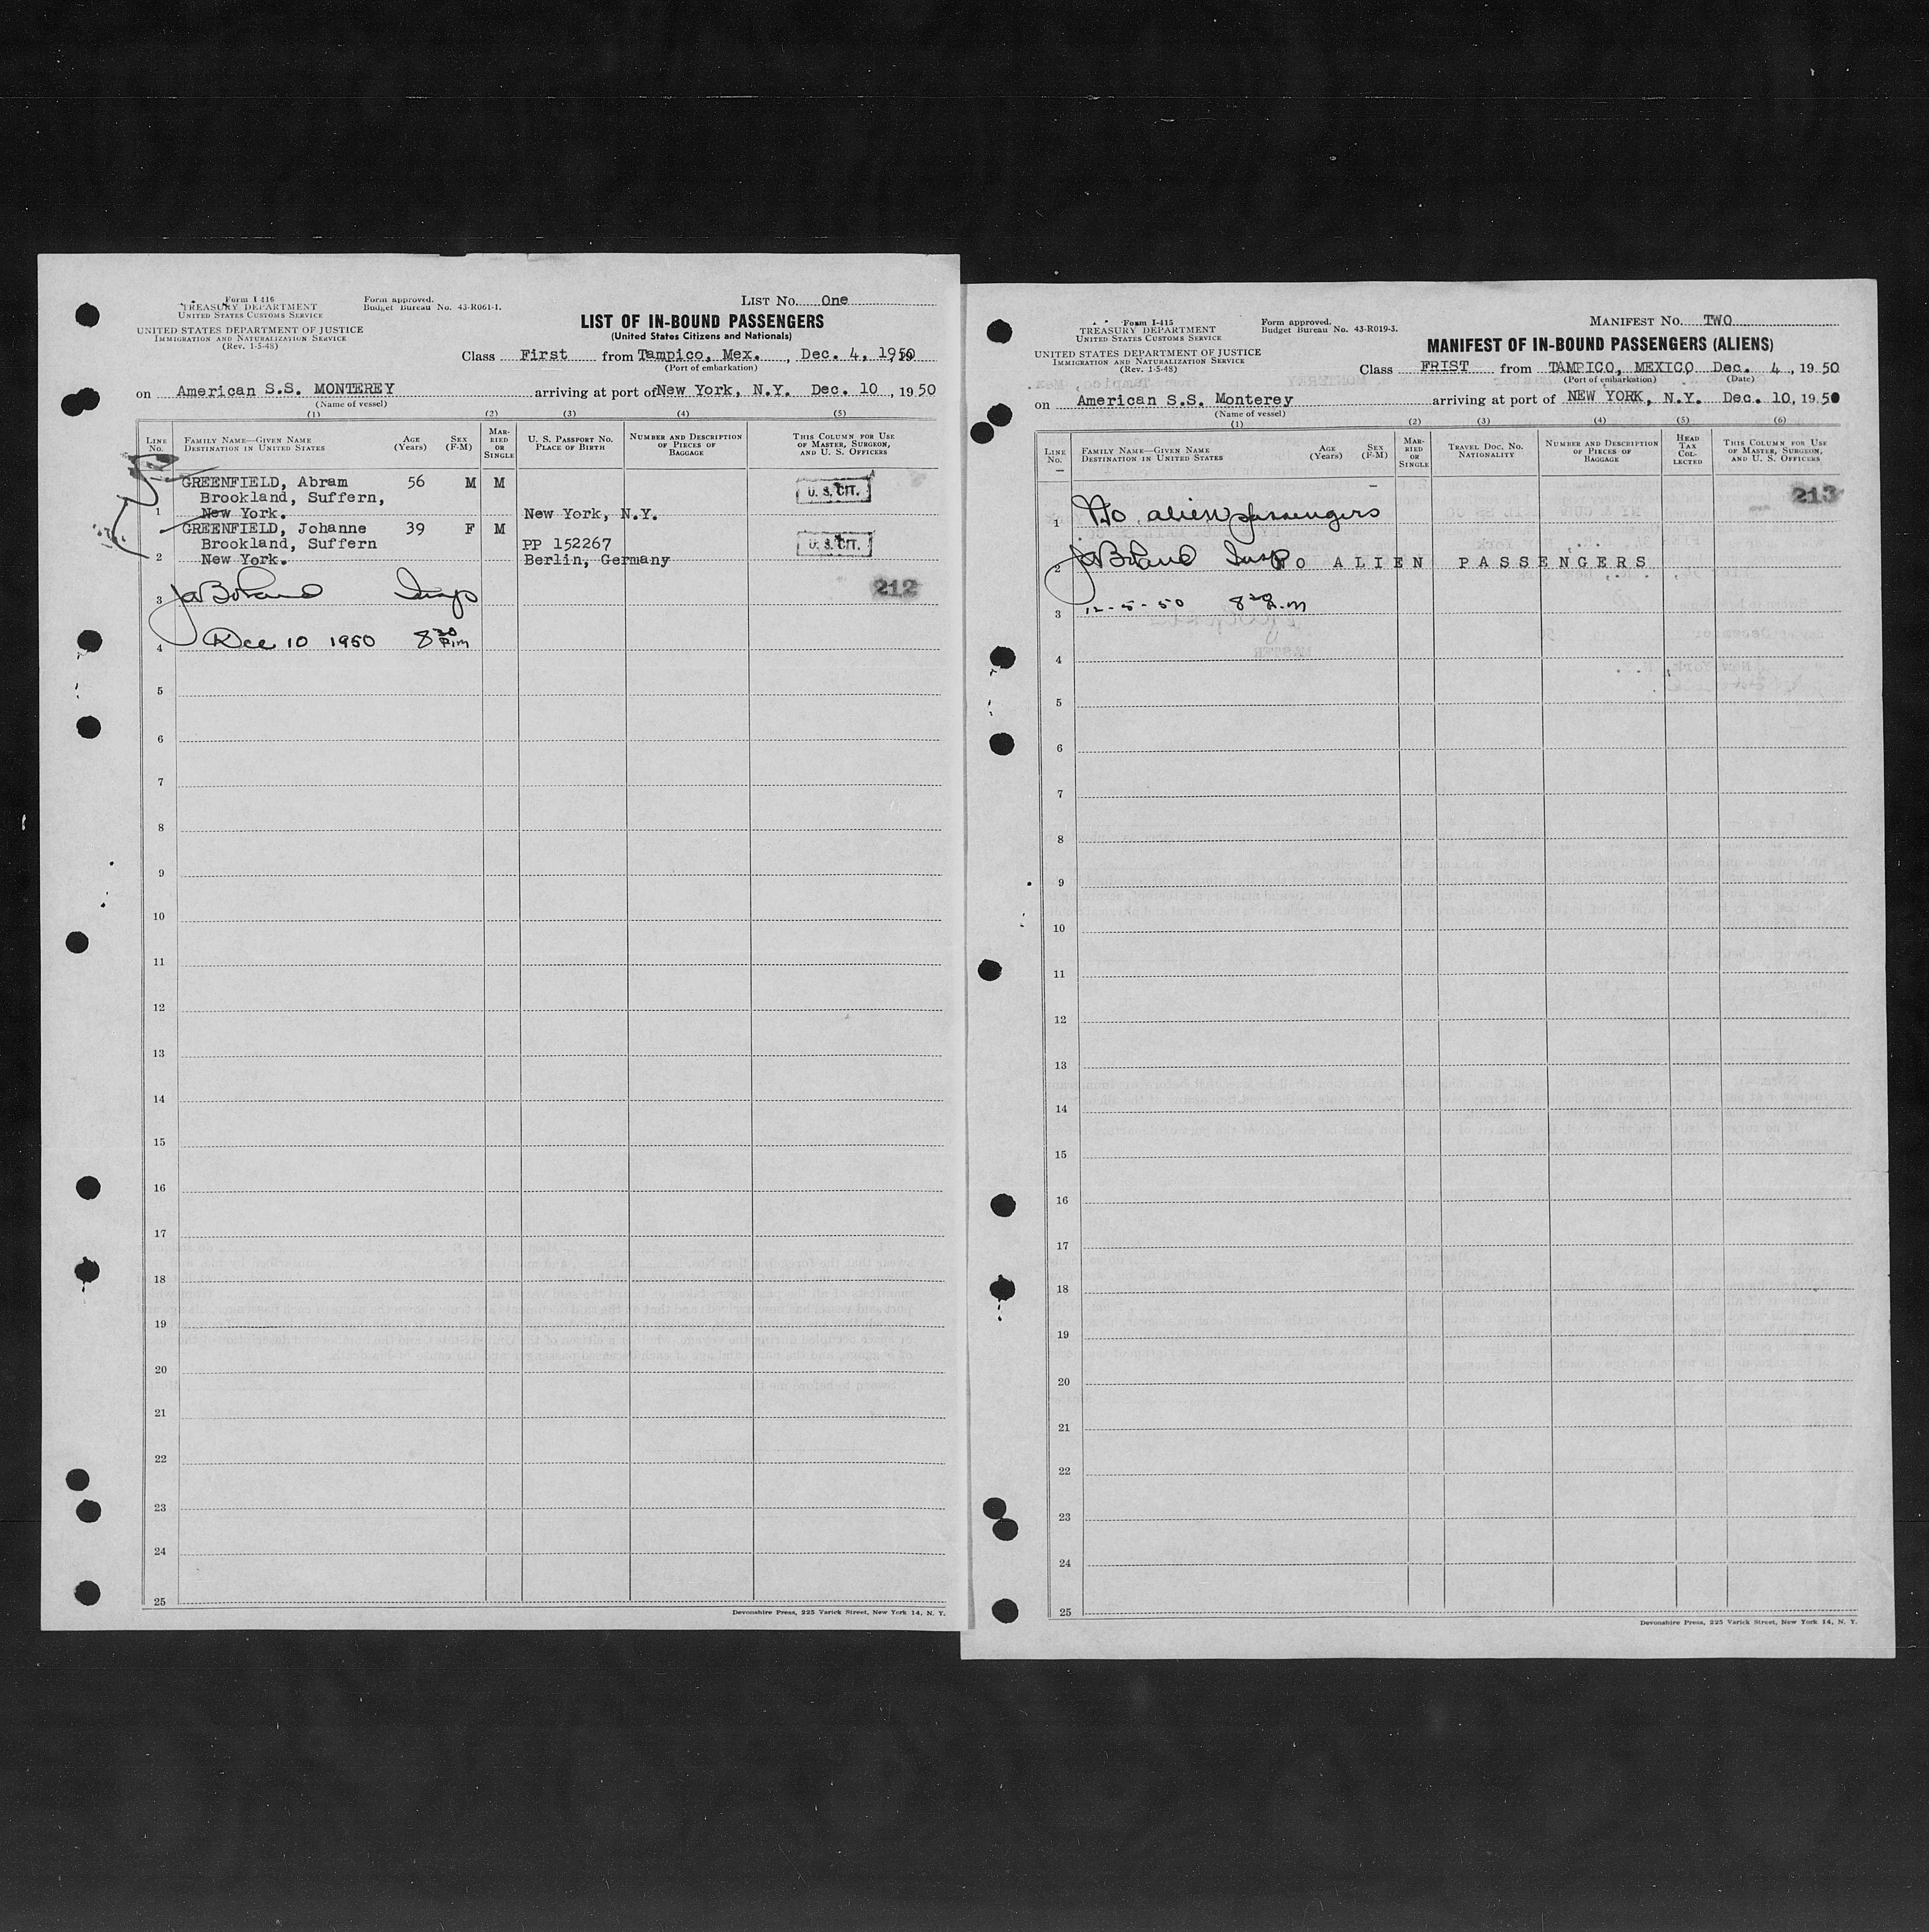 Form I 416
TREASURY DEPARTMENT
UNITED STATES CUSTOMS SERVICE
UNITED STATES DEPARTMENT OF JUSTICE
IMMIGRATION AND NATURALIZATION SERVICE
(Rev. 1-5-48)
Form approved.
Budget Bureau No. 43-R061-1.
LIST NO. One
LIST OF IN-BOUND PASSENGERS
(United States Citizens and Nationals)
Class First from Tampico, Mex., Dec. 4, 1950
(Port of embarkation)
on American S.S. MONTEREY arriving at port of New York, N.Y. Dec. 10, 1950
(Name of vessel)
(1) (2) (3) (4) (5)
LINE No. FAMILY NAME—GIVEN NAME DESTINATION IN UNITED STATES AGE (Years) SEX (F-M) MARRIED OR SINGLE U. S. PASSPORT NO. PLACE OF BIRTH NUMBER AND DESCRIPTION OF PIECES OF BAGGAGE THIS COLUMN FOR USE OF MASTER, SURGEON, AND U. S. OFFICERS
GREENFIELD, Abram 56 M M U. S. CIT.
Brookland, Suffern,
1 New York. New York, N.Y.
GREENFIELD, Johanne 39 F M
Brookland, Suffern PP 152267 U. S. CIT.
2 New York. Berlin, Germany
212
3 Insp
4 Dec 10 1950 8 30 P.m
5
6
7
8
9
10
11
12
13
14
15
16
17
18
19
20
21
22
23
24
25
Devonshire Press, 225 Varick Street, New York 14, N. Y.
Form I-415
TREASURY DEPARTMENT
UNITED STATES CUSTOMS SERVICE
UNITED STATES DEPARTMENT OF JUSTICE
IMMIGRATION AND NATURALIZATION SERVICE
(Rev. 1-5-48)
Form approved.
Budget Bureau No. 43-R019-3.
MANIFEST NO. TWO
MANIFEST OF IN-BOUND PASSENGERS (ALIENS)
Class FRIST from TAMPICO, MEXICO Dec. 4, 1950
(Port of embarkation) (Date)
on American S.S. Monterey arriving at port of NEW YORK, N.Y. Dec. 10, 1950
(Name of vessel)
(1) (2) (3) (4) (5) (6)
LINE No. FAMILY NAME—GIVEN NAME DESTINATION IN UNITED STATES AGE (Years) SEX (F-M) MARRIED OR SINGLE TRAVEL DOC. NO. NATIONALITY NUMBER AND DESCRIPTION OF PIECES OF BAGGAGE HEAD TAX COLLECTED THIS COLUMN FOR USE OF MASTER, SURGEON, AND U. S. OFFICERS
213
1 No alien passengers
2 Insp NO ALIEN PASSENGERS
3 12-5-50
4
5
6
7
8
9
10
11
12
13
14
15
16
17
18
19
20
21
22
23
24
25
Devonshire Press, 225 Varick Street, New York 14, N. Y.